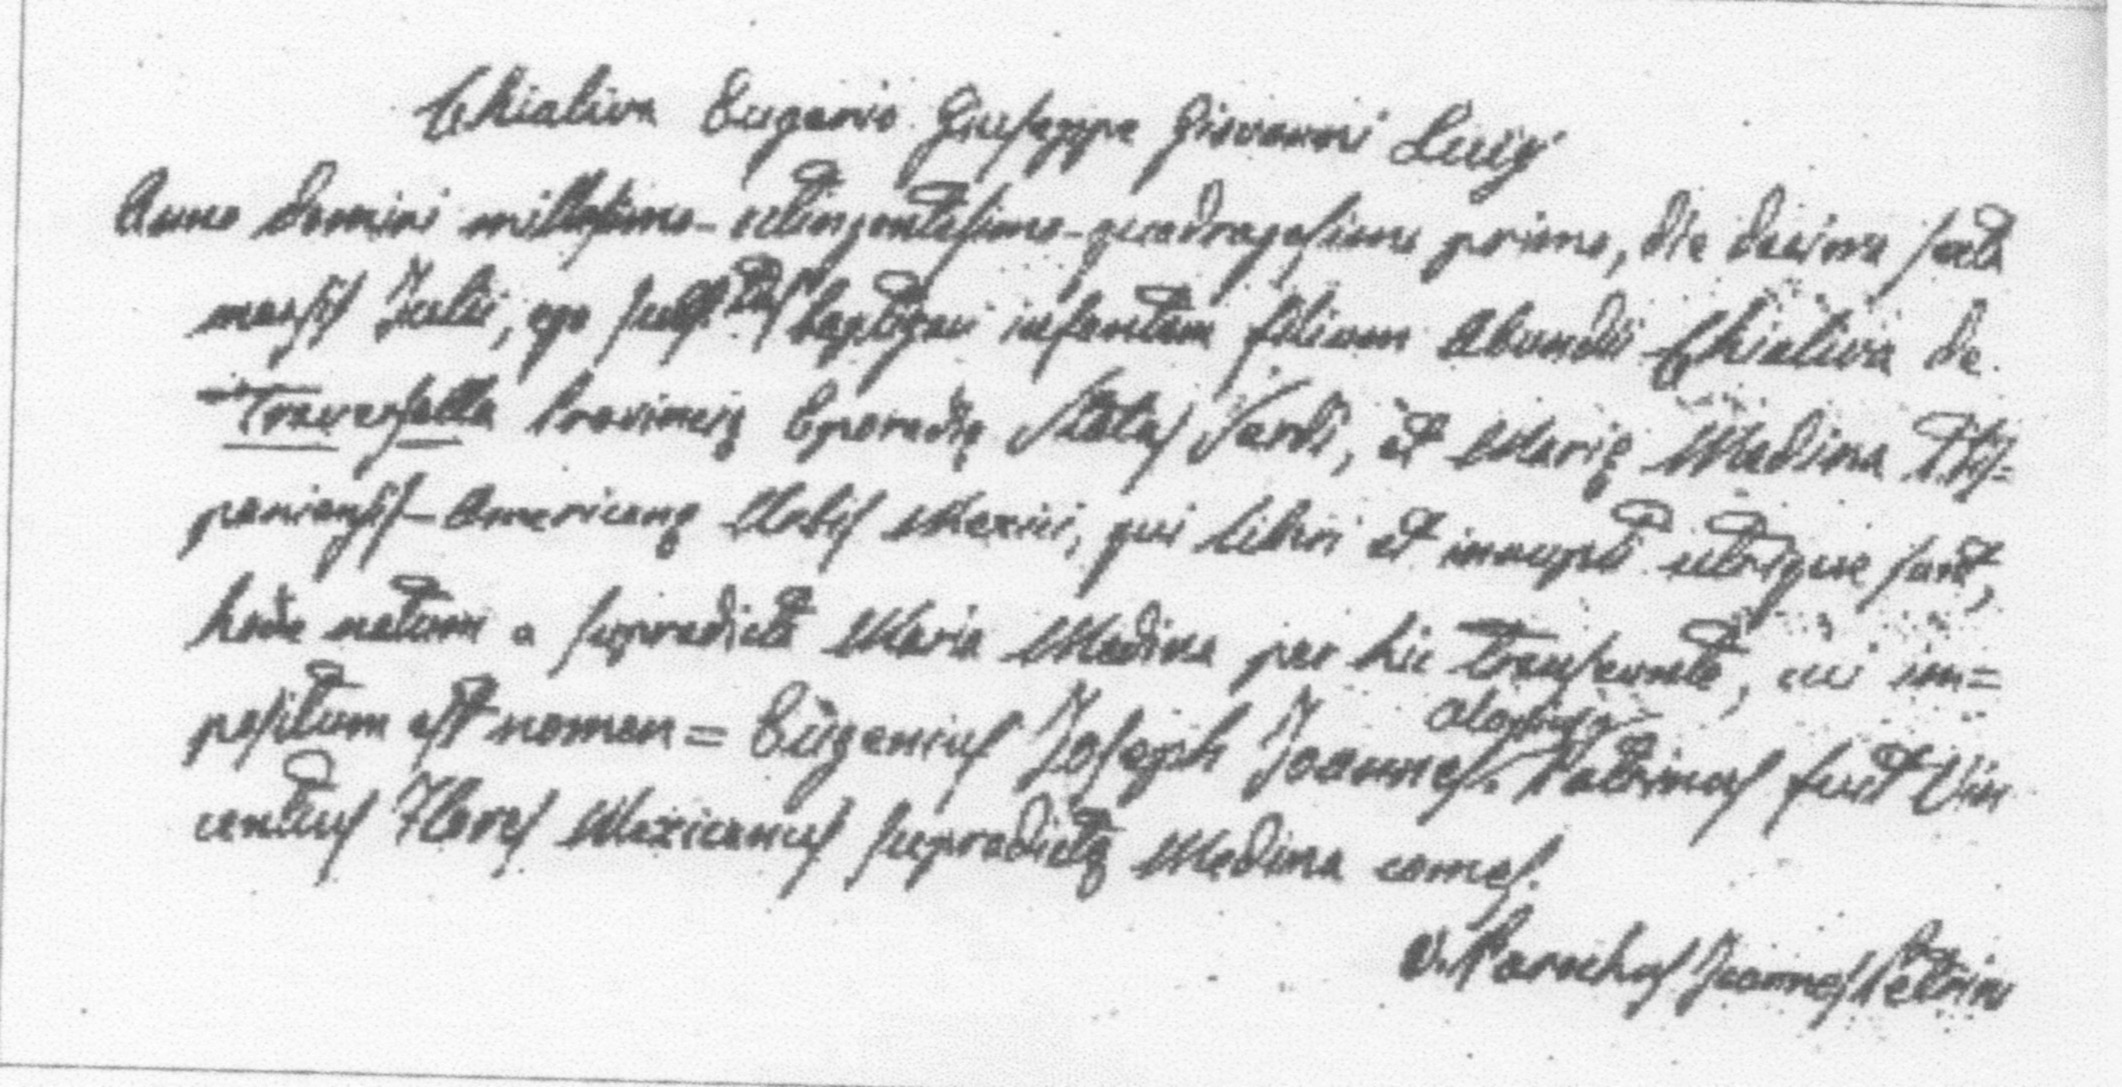 Chialiva Eugenio Giuseppe Giovanni Luigi
Anno Domini millesimo-octingentesimo-quadragesimo primo, die decima sexta
mensis Julii, ego subs.tus baptizavi infantem filium Abundii Chialiva de
Traversella Provincię Eporedię Status Sardi, et Marię Medina His=
paniensis-Americanę Urbis Mexici, qui liberi et innupti utrique sunt,
hodie natum a supradicta Maria Medina per hic transeunte, cui im=
positum est nomen = Eugenius Joseph Joannes Aloysius. Patrinus fuit Vin
centius Flores Mexicanus supradictę Medina comes.
V. Parochus Joannes Petrini